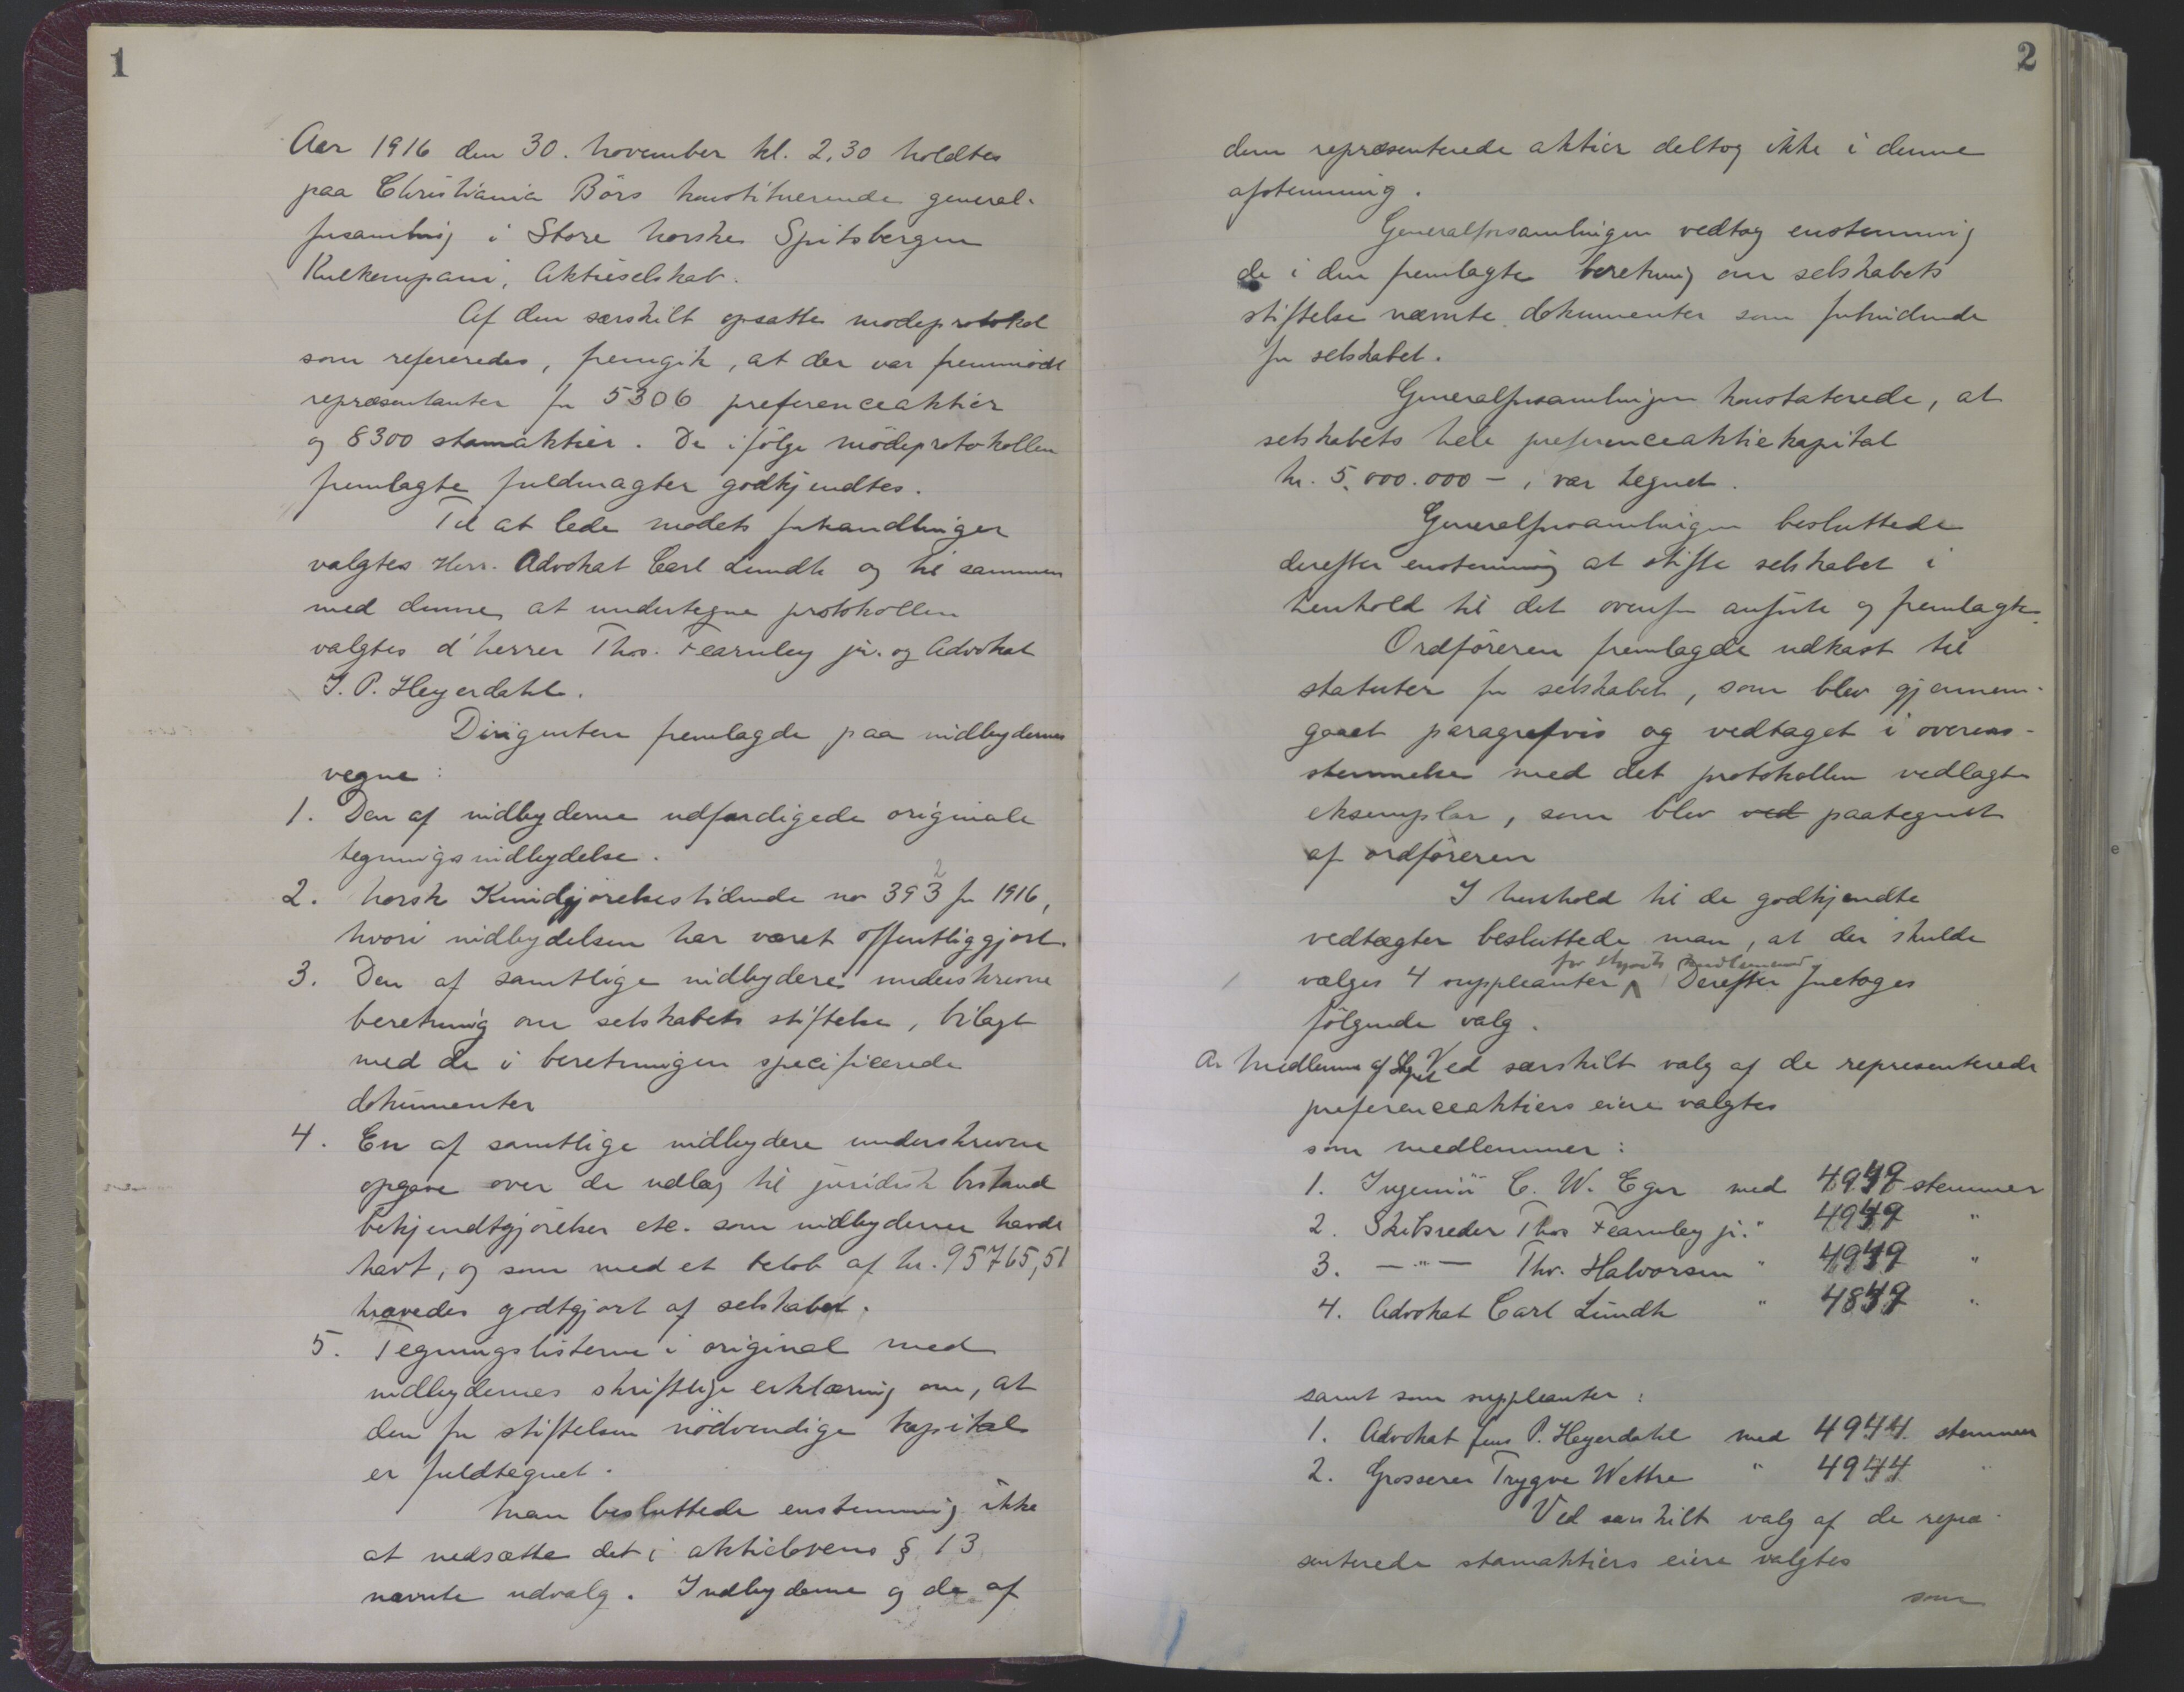 1
Aar 1916 den 30. november kl. 2,30 holdtes
paa Christiania Börs konstituerende general-
forsamling i Store Norske Spitsbergen
Kulkompani, Aktieselskab.
Af den særskilt opsatte mödeprotokol
som refereredes, fremgik, at der var fremmödt
repræsentanter for 5306 preferenceaktier
og 8300 stamaktier. De ifölge mödeprotokollen
fremlagte fuldmagter godkjendtes.
Til at lede mödets forhandlinger
valgtes Herr. Advokat Carl Lundh og til sammen
med denne at undertegne protokollen
valgtes d'herrer Thos. Fearnley jr. og Advokat
J. P. Heyerdahl.
Dirigenten fremlagde paa indbydernes
vegne:
1. Den af indbyderne udfærdigede originale
tegningsindbydelse.
2. Norsk Kundgjörelsestidende no 393 for 1916,
2
hvori indbydelsen har været offentliggjort.
3. Den af samtlige indbydere underskrevne
beretning om selskabets stiftelse, bilagt
med de i beretningen specificerede
dokumenter
4. En af samtlige indbydere underskrevne
opgave over de udlæg til juridisk bistand
bekjendtgjörelser etc. som indbyderne havde
havt, og som med et belöb af kr. 95765,51
krævedes godtgjort af selskabet.
5. Tegningslisterne i original med
indbydernes skriftlige erklæring om, at
den for stiftelsen nödvendige kapital
er fuldtegnet.
Man besluttede enstemmig ikke
at nedsætte det i aktielovens § 13
nævnte udvalg. Indbyderne og de af
2
dem repræsenterede aktier deltog ikke i denne
afstemning.
Generalforsamlingen vedtog enstemmig
de i den fremlagte beretning om selskabets
stiftelse nævnte dokumenter som forbindende
for selskabet.
Generalforsamlingen konstaterede, at
selskabets hele preferenceaktiekapital
kr. 5.000.000 – , var tegnet.
Generalforsamlingen besluttede
derefter enstemmig at stifte selskabet i
henhold til det ovenfor anförte og fremlagte.
Ordföreren fremlagde udkast til
statuter for selskabet, som blev gjennem-
gaaet paragrafvis og vedtaget i overens-
stemmelse med det protokollen vedlagte
eksemplar, som blev ved paategnet
af ordföreren
I henhold til de godkjendte
vedtægter besluttede man, at der skulde
for styrets medlemmer
vælges 4 suppleanter Derefter foretoges
fölgende valg.
A. Medlemmer af Styret Ved særskilt valg af de representerede
preferenceaktiers eiere valgtes
som medlemmer:
1. Ingeniör C. W. Eger med 4949 stemmer
2. Skibsreder Thos Fearnley jr. " 4949 "
3. — " — Thv. Halvorsen " 4949 "
4. Advokat Carl Lundh " 4849 "
samt som suppleanter:
1. Advokat Jens P. Heyerdahl med 4944 stemmer
2. Grosserer Trygve Wettre " 4944 "
Ved særskilt valg af de repræ-
senterede stamaktiers eiere valgtes
som